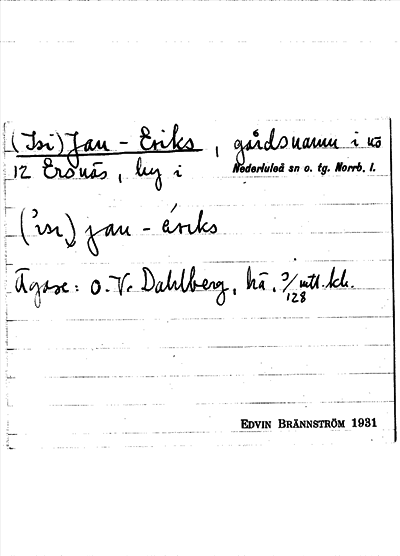 (Isi) Jan - Eriks, gårdsnamn i nö
12 Ersnäs, by i Nederluleå sn o. tg. Norrb. l.
('isi) jan - ériks
Ägare: O. V. Dahlberg, hä, 3/128 mtl. kh.
EDVIN BRÄNNSTRÖM 1931